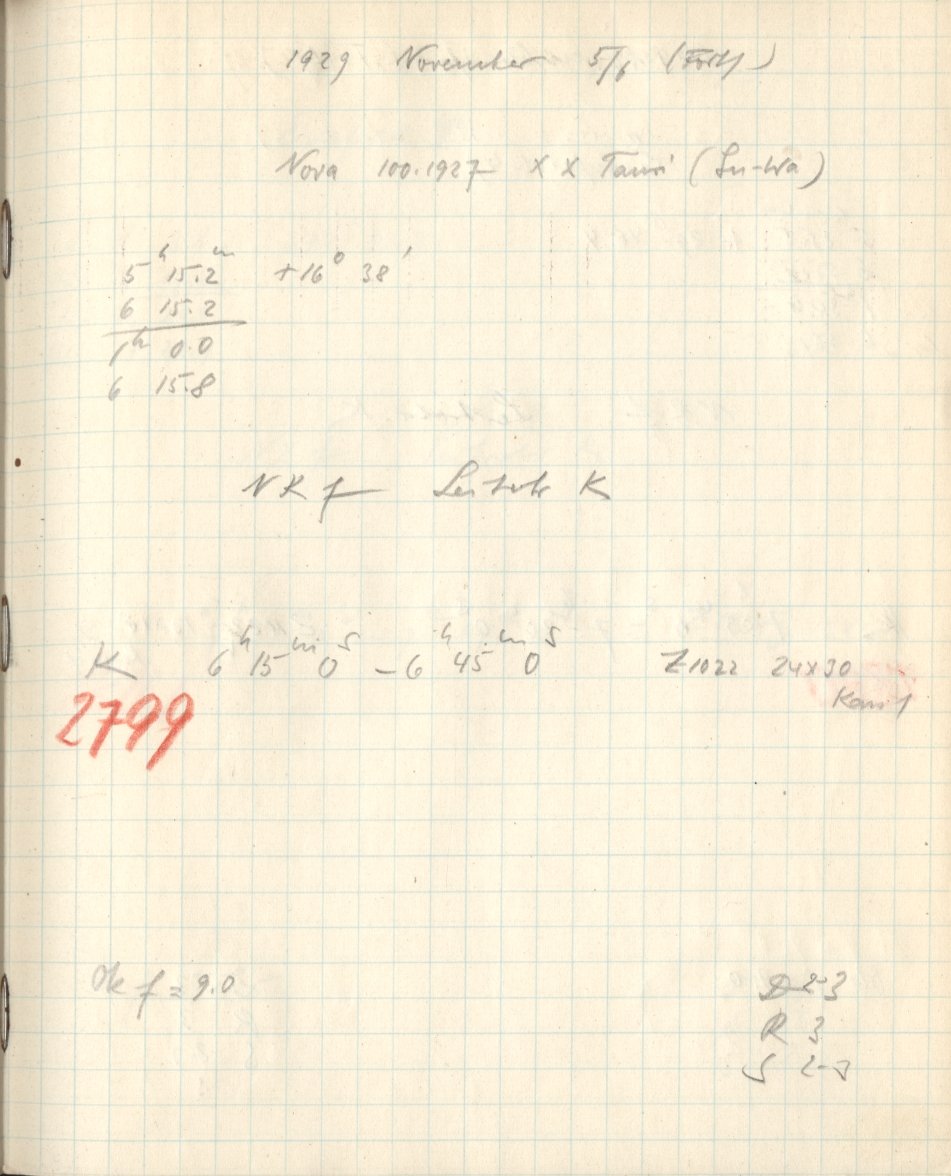 1929 November 5/6 (Forts)
Nova 100.1927 XX Tauri (Su-Wa)
5ʰ 15.2ᵐ +16° 38'
6 15.2
1ʰ 0.0
6 15.8
NRf K
K 6ʰ 15ᵐ 0ˢ – 6ʰ 45ᵐ 0ˢ Z1022 24x30
2799
Ok f = 9.0
D 2-3
R 3
S 2-3